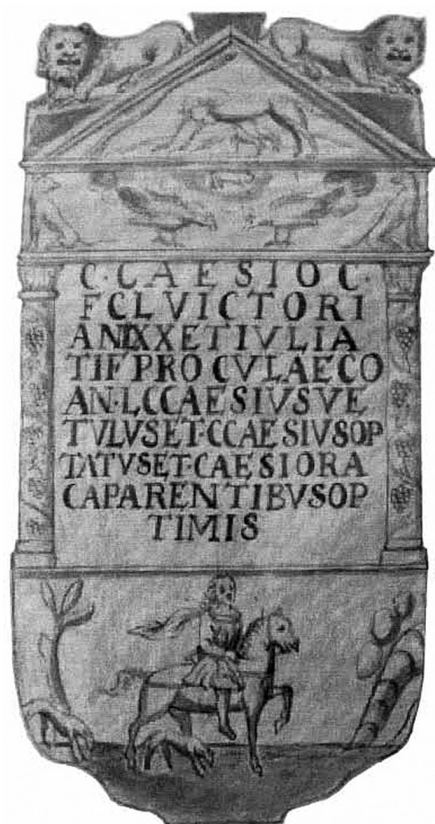 C·CAESIO C·
F CL VICTORI
AN IXX ET IVLIA
TIF PROCVLAE CO
AN·L C CAESIVS VE
TVLVS ET·C CAESIVS OP
TATVS ET·CAESIO RA
CA PARENTIBVS OP
TIMIS